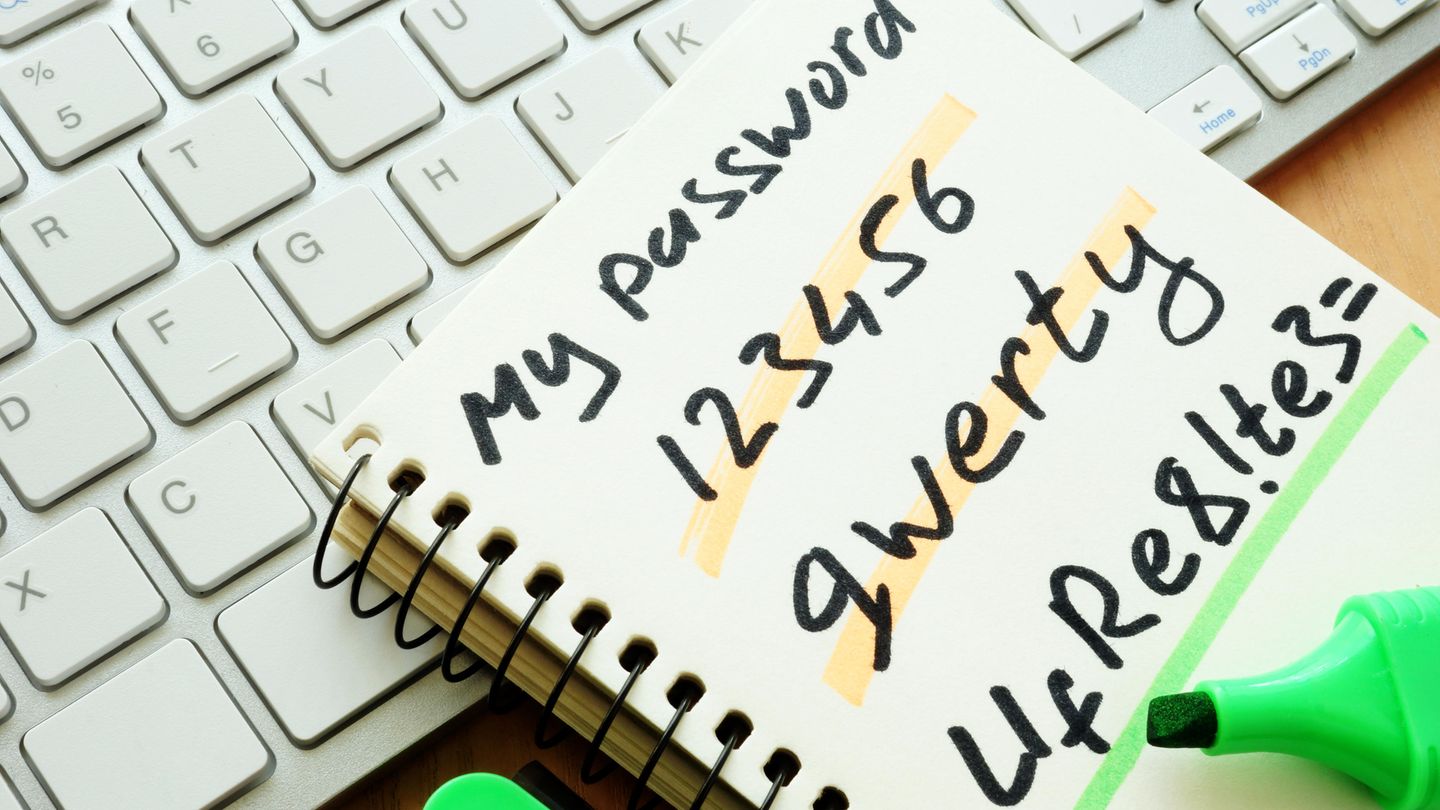 My password
123456
qwerty
UfRe8!te3=
6
U
K
/
PgUp
%
5
Y
J
PgDn
T
H
←
Home
R
G
F
D
V
C
X